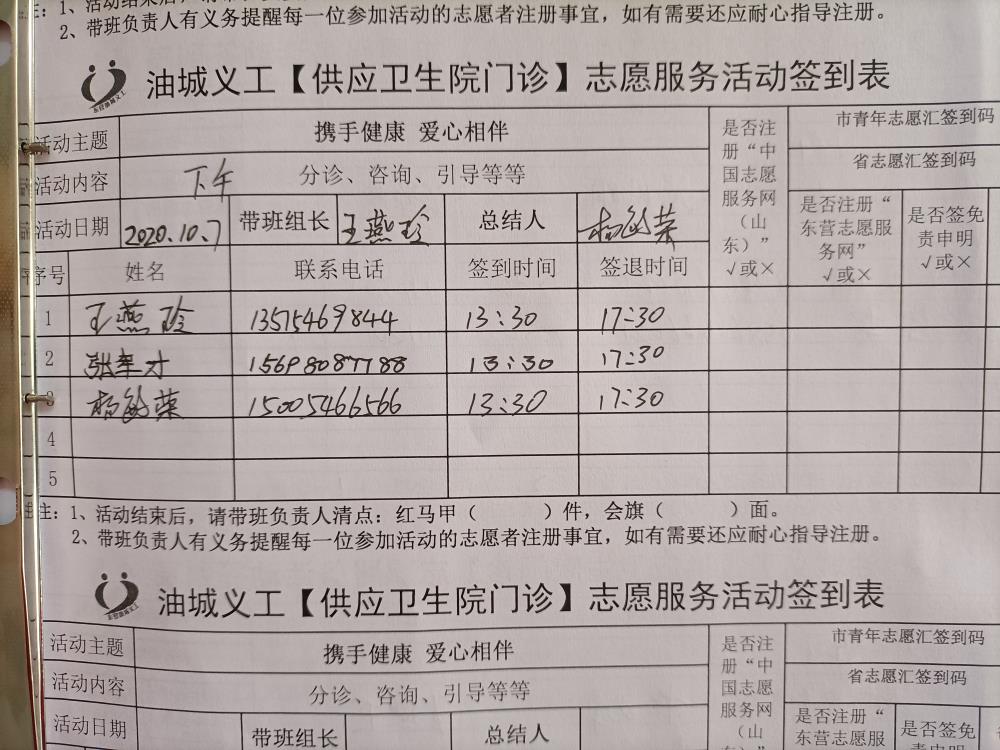 注：1、活动结束后，请带
2、带班负责人有义务提醒每一位参加活动的志愿者注册事宜，如有需要还应耐心指导注册。
油城义工【供应卫生院门诊】志愿服务活动签到表
活动主题 携手健康 爱心相伴 是否注册“中国志愿服务网（山东）”√或× 市青年志愿汇签到码
活动内容 下午 分诊、咨询、引导等等 省志愿汇签到码
活动日期 2020.10.7 带班组长 王燕玲 总结人 杨敏荣 是否注册“东营志愿服务网”√或× 是否签免责申明√或×
序号 姓名 联系电话 签到时间 签退时间
1 王燕玲 13515469844 13:30 17:30
2 张 才 15698087788 13:30 17:30
3 杨敏荣 15005466566 13:30 17:30
4
5
注：1、活动结束后，请带班负责人清点：红马甲（ ）件，会旗（ ）面。
2、带班负责人有义务提醒每一位参加活动的志愿者注册事宜，如有需要还应耐心指导注册。
油城义工【供应卫生院门诊】志愿服务活动签到表
活动主题 携手健康 爱心相伴 是否注册“中国志愿服务网（山 市青年志愿汇签到码
活动内容 分诊、咨询、引导等等 省志愿汇签到码
活动日期 带班组长 总结人 是否注册“东营志愿服 是否签免